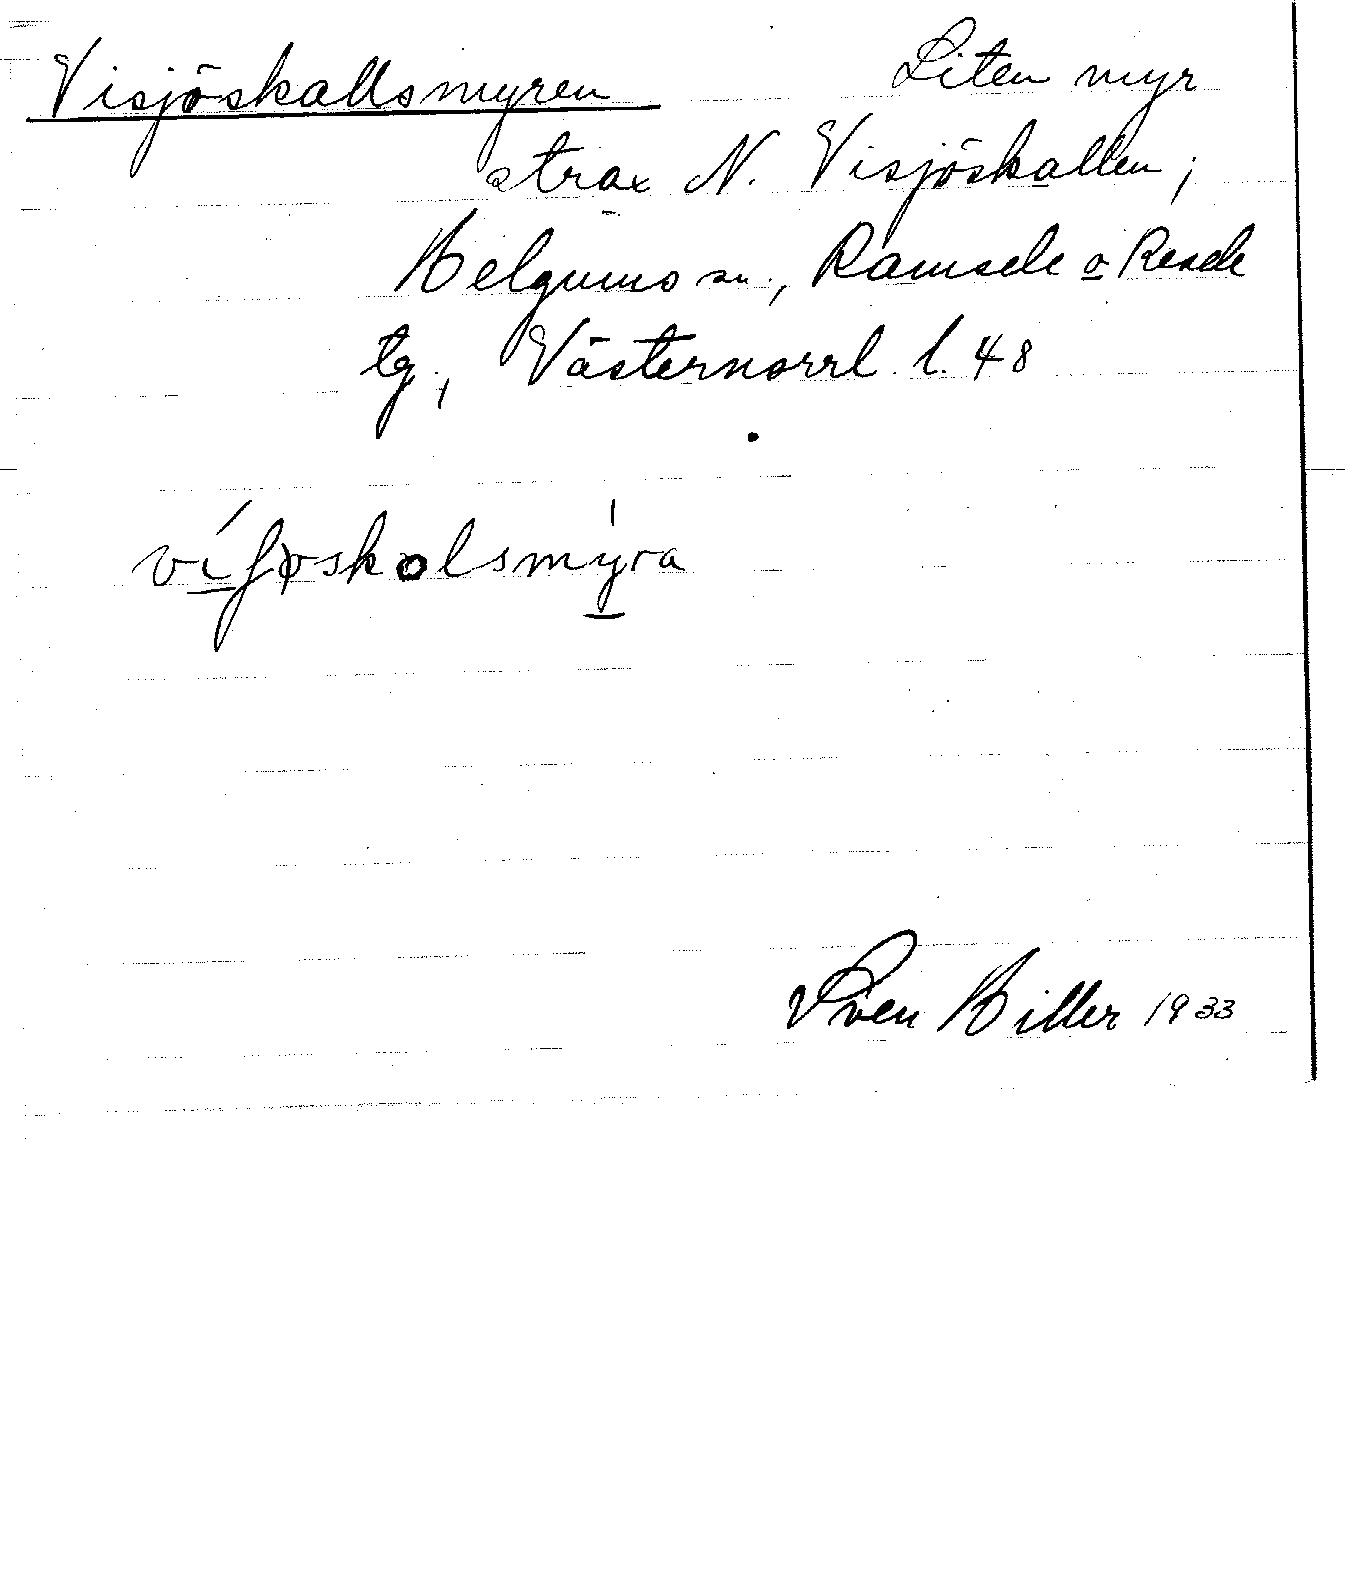 Visjöskallsmyren Liten myr
strax N. Visjöskallen;
Helgums sn., Ramsele o Resele
tg., Västernorrl. l. 48
víʃøskolsmýra
Sven Hiller 1933